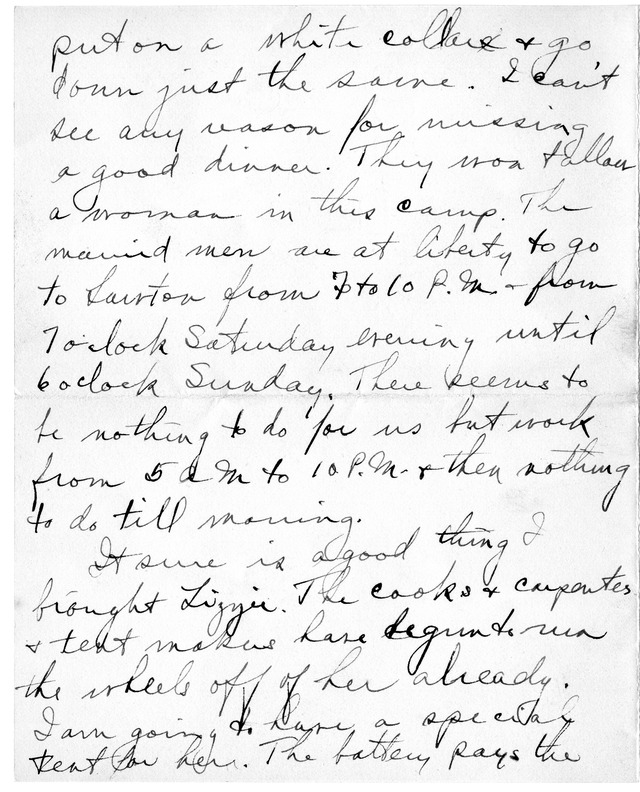 put on a white collar & go
down just the same. I can't
see any reason for missing
a good dinner. They won t allow
a woman in this camp. The
married men are at liberty to go
to Lawton from 7 to 10 P.M. & from
7 oclock Saturday evening until
6 oclock Sunday. There seems to
be nothing to do for us but work
from 5 a M to 10 P.M. & then nothing
to do till morning.
It sure is a good thing I
brought Lizzie. The cooks & carpenters
& tent makers have begun to run
the wheels off of her already.
I am going to have a special
tent for her. The battery pays the